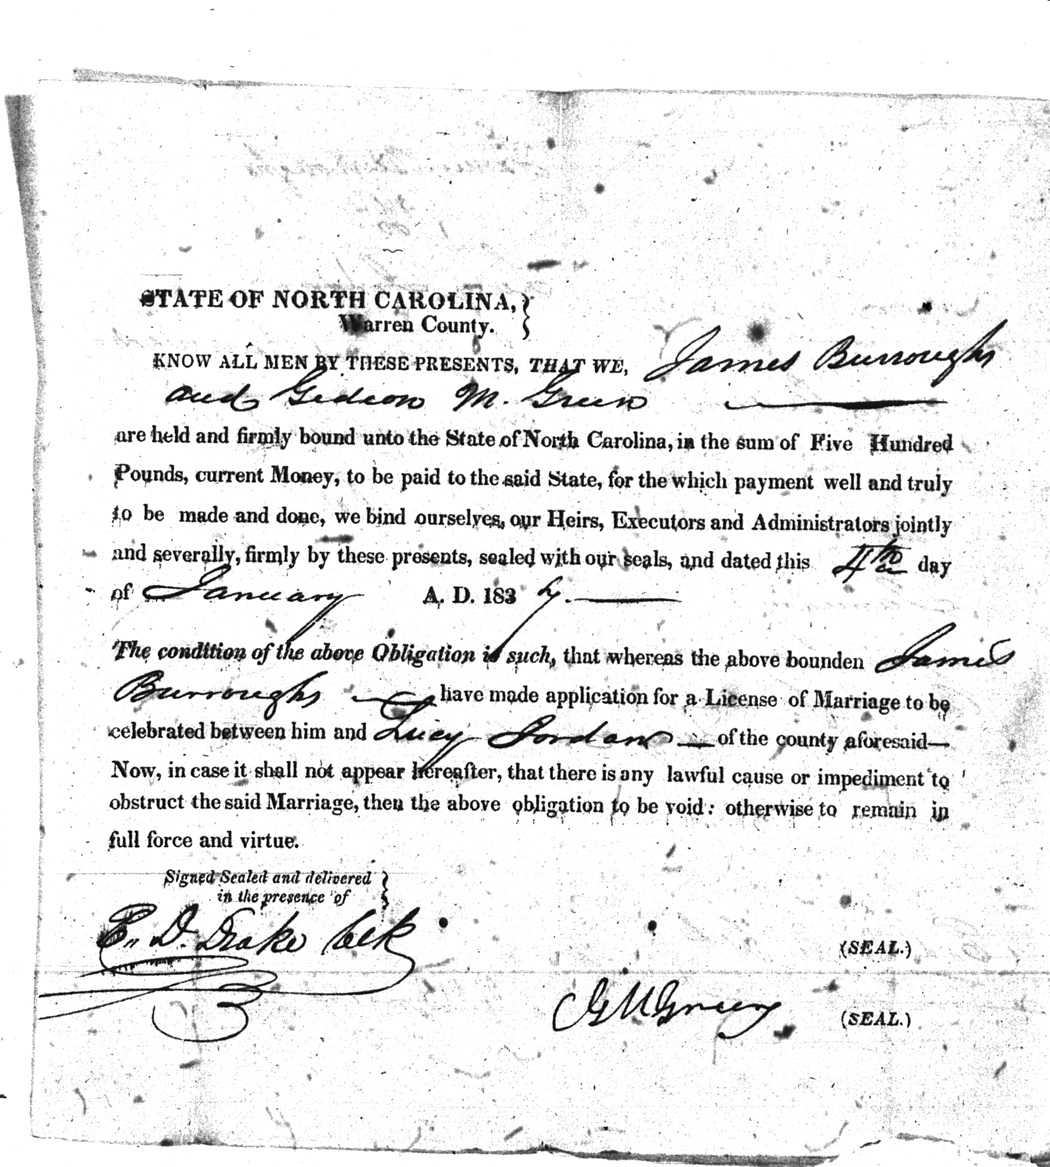 STATE OF NORTH CAROLINA,
Warren County.
KNOW ALL MEN BY THESE PRESENTS, THAT WE, James Burroughs
and Gideon M. Green
are held and firmly bound unto the State of North Carolina, in the sum of Five Hundred
Pounds, current Money, to be paid to the said State, for the which payment well and truly
to be made and done, we bind ourselves, our Heirs, Executors and Administrators jointly
and severally, firmly by these presents, sealed with our seals, and dated this 4th day
of January A. D. 1837.
The condition of the above Obligation is such, that whereas the above bounden James
Burroughs have made application for a License of Marriage to be
celebrated between him and Lucy Jordan of the county aforesaid—
Now, in case it shall not appear hereafter, that there is any lawful cause or impediment to
obstruct the said Marriage, then the above obligation to be void: otherwise to remain in
full force and virtue.
Signed Sealed and delivered
in the presence of
E. D. Drake Clk
(SEAL.)
G M Green (SEAL.)